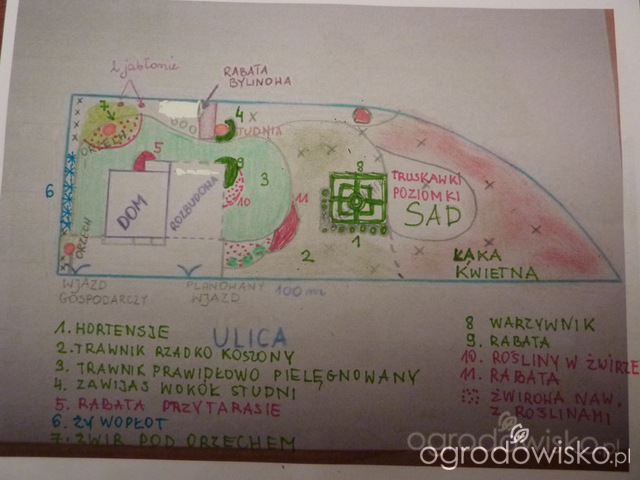 2 jabłonie
RABATA
BYLINOWA
7
4
STUDNIA
ORZECH
5
9
8
6
DOM
ROZBUDOWA
10
3
11
TRUSKAWKI
POZIOMKI
SAD
ORZECH
2
1
ŁĄKA
KWIETNA
WJAZD
GOSPODARCZY
PLANOWANY
WJAZD
100 m
ULICA
1. HORTENSJE
2. TRAWNIK RZADKO KOSZONY
3. TRAWNIK PRAWIDŁOWO PIELĘGNOWANY
4. ZAWIJAS WOKÓŁ STUDNI
5. RABATA PRZY TARASIE
6. ŻYWOPŁOT
7. ŻWIR POD ORZECHEM
8 WARZYWNIK
9. RABATA
10. ROŚLINY W ŻWIRZE
11. RABATA
ŻWIROWA NAW.
Z ROŚLINAMI
ogrodowisko.pl
ogrodowisko.pl